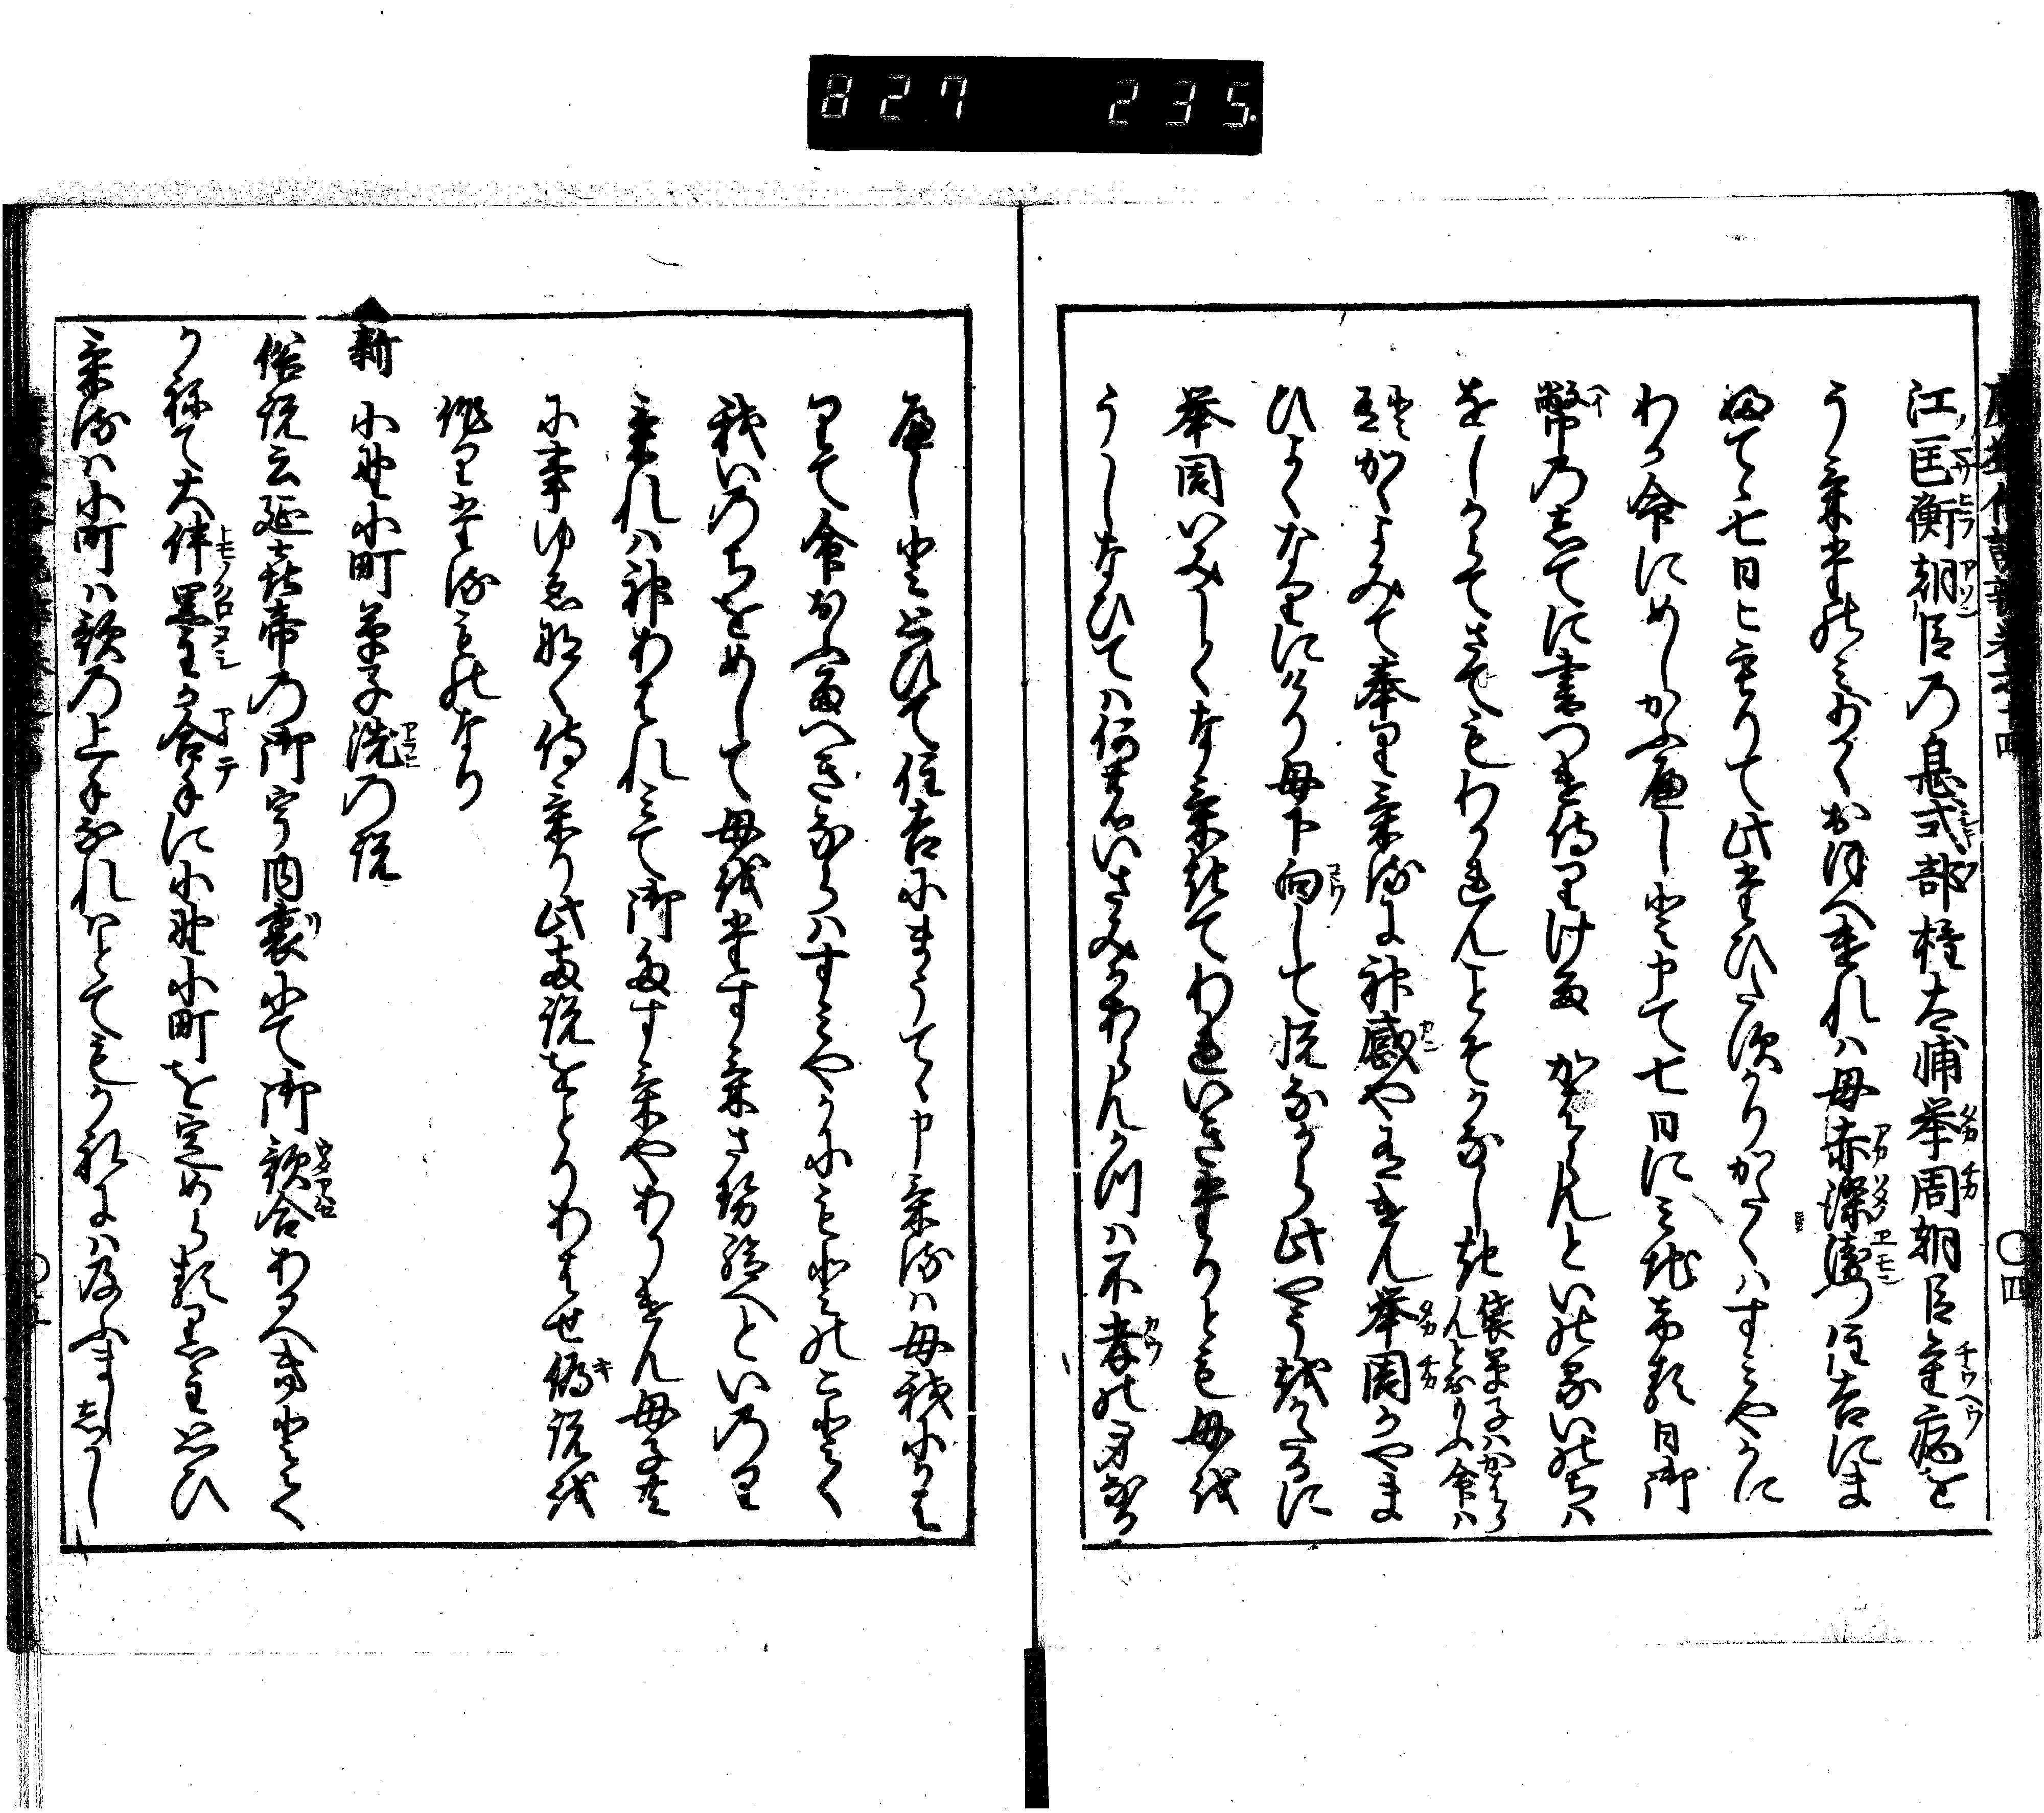 827 235
江匡衡朝臣乃息式部権大輔挙周朝臣重病を
う希てたのみすくなくおほえけれハ母赤染衛門住吉にま
うてゝ七日こもりて此たひたすかりかたくハすミやかに
わか命にめしかふへしと申て七日にミちける日御
幣乃志てに書つけ侍りける かハらんといのるいのちハ
をしからてさてもわかれんことそかなしき
かくよみて奉りけるに神感やありけん挙周かやま
ひよくなりにけり母下向して悦なから此やうをかたるに
挙周いみしくなけきてわれいきたりとも母を
うしなひてハ何のいさみかあらんかつハ不孝の身なる
へしと思ひて住吉にまうてゝ申けるハ母我にかは
りて命おふへきならハすミやかにもとのことく
我いのちをめして母をたすけさせ給へといのり
けれハ神あはれミて御たすけやありけん母子共
に事ゆゑなく侍けり此両説をとりあはせ偽説を
作りたるものなり
新 小野小町草子洗乃説
俗説云延喜帝乃御宇内裏にて御歌合あるへきにて
かねて大伴黒主か合手に小野小町を定めらる黒主思ひ
けるハ小町ハ歌乃上手なれハとてもかねにハ及ふまし志かし
四